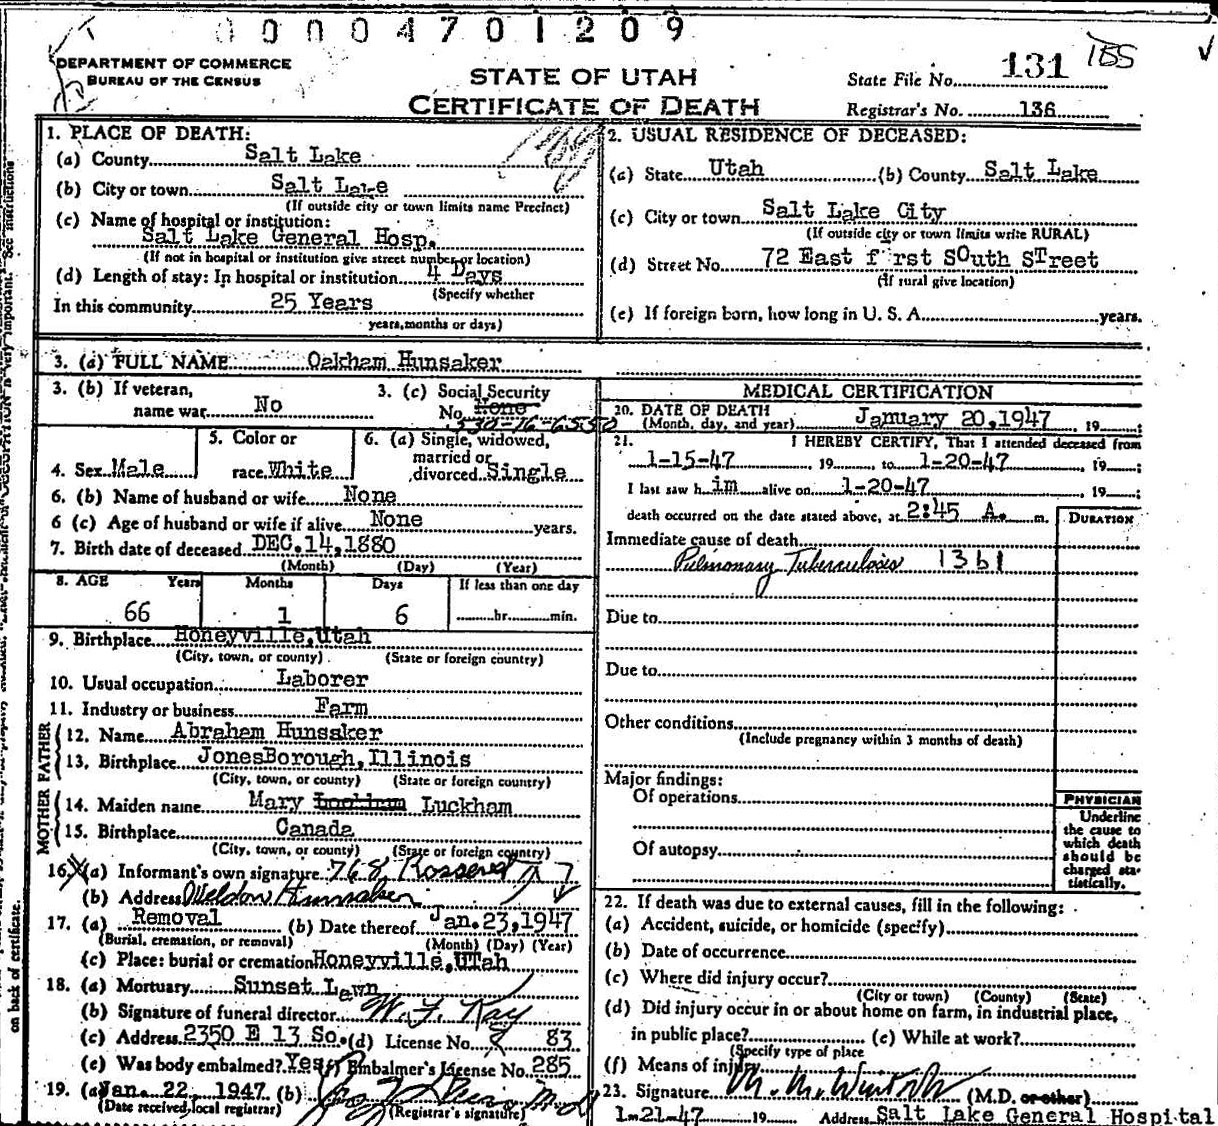 00004701209
DEPARTMENT OF COMMERCE
BUREAU OF THE CENSUS
STATE OF UTAH
CERTIFICATE OF DEATH
State File No. 131 155
Registrar's No. 136
1. PLACE OF DEATH:
(a) County Salt Lake
(b) City or town Salt Lake
(If outside city or town limits name Precinct)
(c) Name of hospital or institution:
Salt Lake General Hosp.
(If not in hospital or institution give street number or location)
(d) Length of stay: In hospital or institution 4 Days
(Specify whether
In this community 25 Years
years, months or days)
2. USUAL RESIDENCE OF DECEASED:
(a) State Utah (b) County Salt Lake
(c) City or town Salt Lake City
(If outside city or town limits write RURAL)
(d) Street No. 72 East f rst SOuth STreet
(If rural give location)
(e) If foreign born, how long in U. S. A. years.
3. (a) FULL NAME Oakham Hunsaker
3. (b) If veteran,
name war No
3. (c) Social Security
No. None
530-16-6550
4. Sex Male
5. Color or
race White
6. (a) Single, widowed,
married or
divorced Single
6. (b) Name of husband or wife None
6 (c) Age of husband or wife if alive None years.
7. Birth date of deceased DEC. 14, 1880
(Month) (Day) (Year)
8. AGE Years Months Days If less than one day
66 1 6 hr. min.
9. Birthplace Honeyville, Utah
(City, town, or county) (State or foreign country)
10. Usual occupation Laborer
11. Industry or business Farm
FATHER
12. Name Abraham Hunsaker
13. Birthplace JonesBorough, Illinois
(City, town, or county) (State or foreign country)
MOTHER
14. Maiden name Mary Luckham
15. Birthplace Canada
(City, town, or county) (State or foreign country)
16. (a) Informant's own signature 768
(b) Address Weldon Hunsaker
17. (a) Removal (b) Date thereof Jan. 23, 1947
(Burial, cremation, or removal) (Month) (Day) (Year)
(c) Place: burial or cremation Honeyville, UTah
18. (a) Mortuary Sunset Lawn
(b) Signature of funeral director W. F. Kay
(c) Address 2350 E 13 So. (d) License No. 83
(e) Was body embalmed? Yes (f) Embalmer's License No. 285
19. (a) Jan. 22, 1947 (b)
(Date received local registrar) (Registrar's signature)
MEDICAL CERTIFICATION
20. DATE OF DEATH
(Month, day, and year) January 20, 1947 , 19 ;
21. I HEREBY CERTIFY, That I attended deceased from
1-15-47 , 19 , to 1-20-47 , 19 ;
I last saw h im alive on 1-20-47 , 19 ;
death occurred on the date stated above, at 2:45 A. m.
DURATION
Immediate cause of death
Pulmonary Tuberculosis 13b1
Due to
Due to
Other conditions
(Include pregnancy within 3 months of death)
Major findings:
Of operations
Of autopsy
PHYSICIAN
Underline
the cause to
which death
should be
charged sta-
tistically.
22. If death was due to external causes, fill in the following:
(a) Accident, suicide, or homicide (specify)
(b) Date of occurrence
(c) Where did injury occur?
(City or town) (County) (State)
(d) Did injury occur in or about home on farm, in industrial place,
in public place? (e) While at work?
(Specify type of place
(f) Means of injury
23. Signature (M.D. or other)
1-21-47 19 Address Salt Lake General Hospital
on back of certificate.